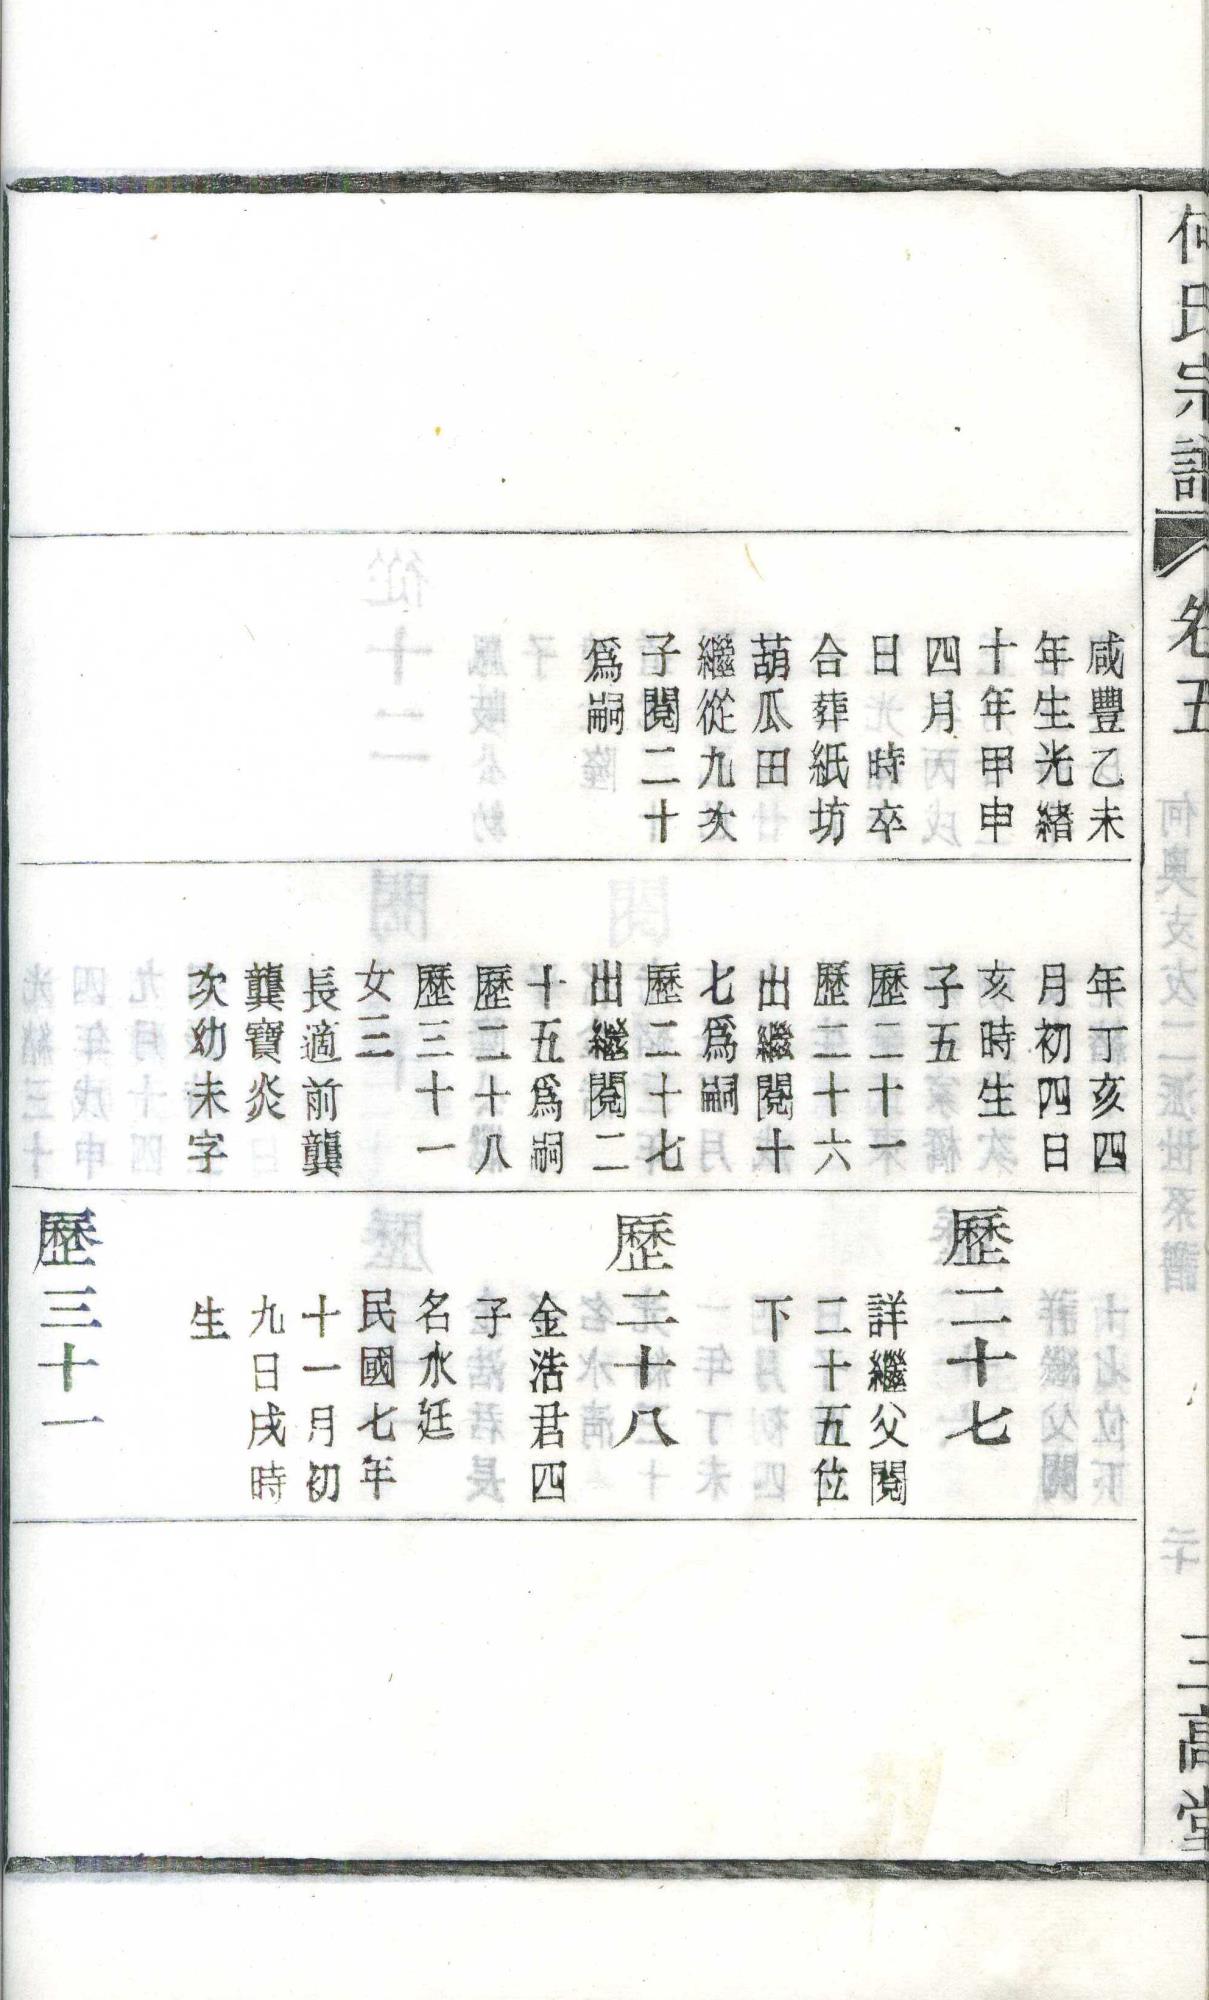 何氏宗譜
卷五
三高堂
咸豐乙未
年生光緒
十年甲申
四月
日 時卒
合葬紙坊
葫瓜田
繼從九次
子閱二十
爲嗣
年丁亥四
月初四日
亥時生
子五
歷二十一
歷二十六
出繼閱十
七爲嗣
歷二十七
出繼閱二
十五爲嗣
歷二十八
歷三十一
女三
長適前龔
龔寶炎
次幼未字
歷二十七
詳繼父閱
二十五位
下
歷二十八
金浩君四
子
名水廷
民國七年
十一月初
九日戌時
生
歷三十一